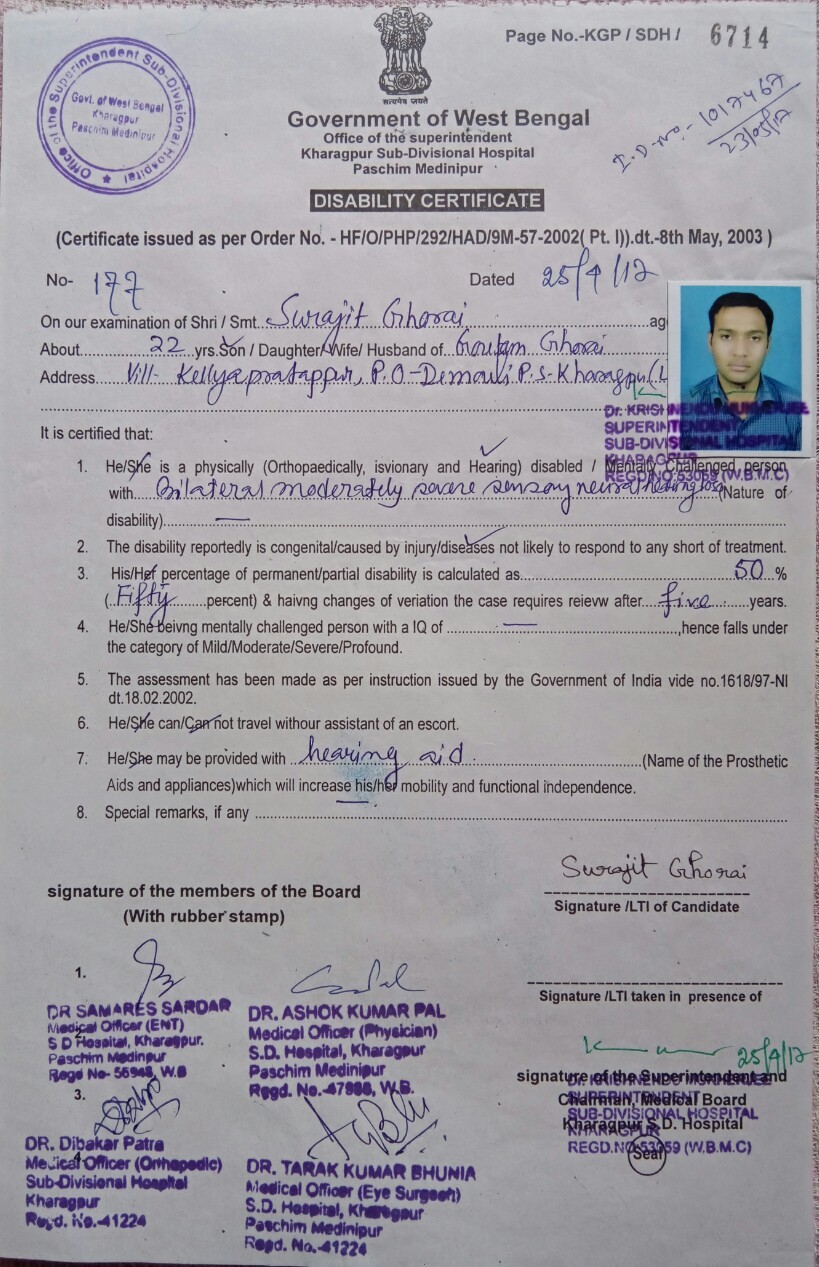 Office of the Superintendent Sub-Divisional Hospital
Govt. of West Bengal
Kharagpur
Paschim Medinipur
सत्यमेव जयते
Page No.-KGP / SDH / 6714
I.D-No.- 1017467
23/05/17
Government of West Bengal
Office of the superintendent
Kharagpur Sub-Divisional Hospital
Paschim Medinipur
DISABILITY CERTIFICATE
(Certificate issued as per Order No. - HF/O/PHP/292/HAD/9M-57-2002( Pt. I)).dt.-8th May, 2003 )
No- 177 Dated 25/4/17
On our examination of Shri / Smt. Surajit Ghorai ag
About 22 yrs.Son / Daughter/ Wife/ Husband of Goutam Ghorai
Address Vill- Kellyapratappur, P.O-Demauli P.S-Kharagpur (L
Dr. KRISHNENDU MUKHERJEE
SUPERINTENDENT
SUB-DIVISIONAL HOSPITAL
KHARAGPUR
REGD.NO.53059 (W.B.M.C)
It is certified that:
1. He/She is a physically (Orthopaedically, isvionary and Hearing) disabled / Mentally Challenged person
with Bilateral moderately severe sensory neural hearing loss (Nature of
disability)
2. The disability reportedly is congenital/caused by injury/diseases not likely to respond to any short of treatment.
3. His/Her percentage of permanent/partial disability is calculated as 50 %
( Fifty percent) & haivng changes of veriation the case requires reievw after five years.
4. He/She beivng mentally challenged person with a IQ of ,hence falls under
the category of Mild/Moderate/Severe/Profound.
5. The assessment has been made as per instruction issued by the Government of India vide no.1618/97-NI
dt.18.02.2002.
6. He/She can/Can not travel withour assistant of an escort.
7. He/She may be provided with hearing aid (Name of the Prosthetic
Aids and appliances)which will increase his/her mobility and functional independence.
8. Special remarks, if any
Surajit Ghorai
Signature /LTI of Candidate
signature of the members of the Board
(With rubber stamp)
Signature /LTI taken in presence of
1.
DR SAMARES SARDAR
Medical Officer (ENT)
2
S D Hospital, Kharagpur.
Paschim Medinipur
Regd No- 56948, W.B
DR. ASHOK KUMAR PAL
Medical Officer (Physician)
S.D. Hospital, Kharagpur
Paschim Medinipur
Regd. No.-47988, W.B.
25/4/17
signature of the Superintendent and
Chairman, Medical Board
Kharagpur S.D. Hospital
(Seal)
Dr. KRISHNENDU MUKHERJEE
SUPERINTENDENT
SUB-DIVISIONAL HOSPITAL
KHARAGPUR
REGD.NO.53059 (W.B.M.C)
3.
DR. Dibakar Patra
Medical Officer (Orthopedic)
4
Sub-Divisional Hospital
Kharagpur
Regd. No.-41224
DR. TARAK KUMAR BHUNIA
Medical Officer (Eye Surgeon)
S.D. Hospital, Kharagpur
Paschim Medinipur
Regd. No.-41224